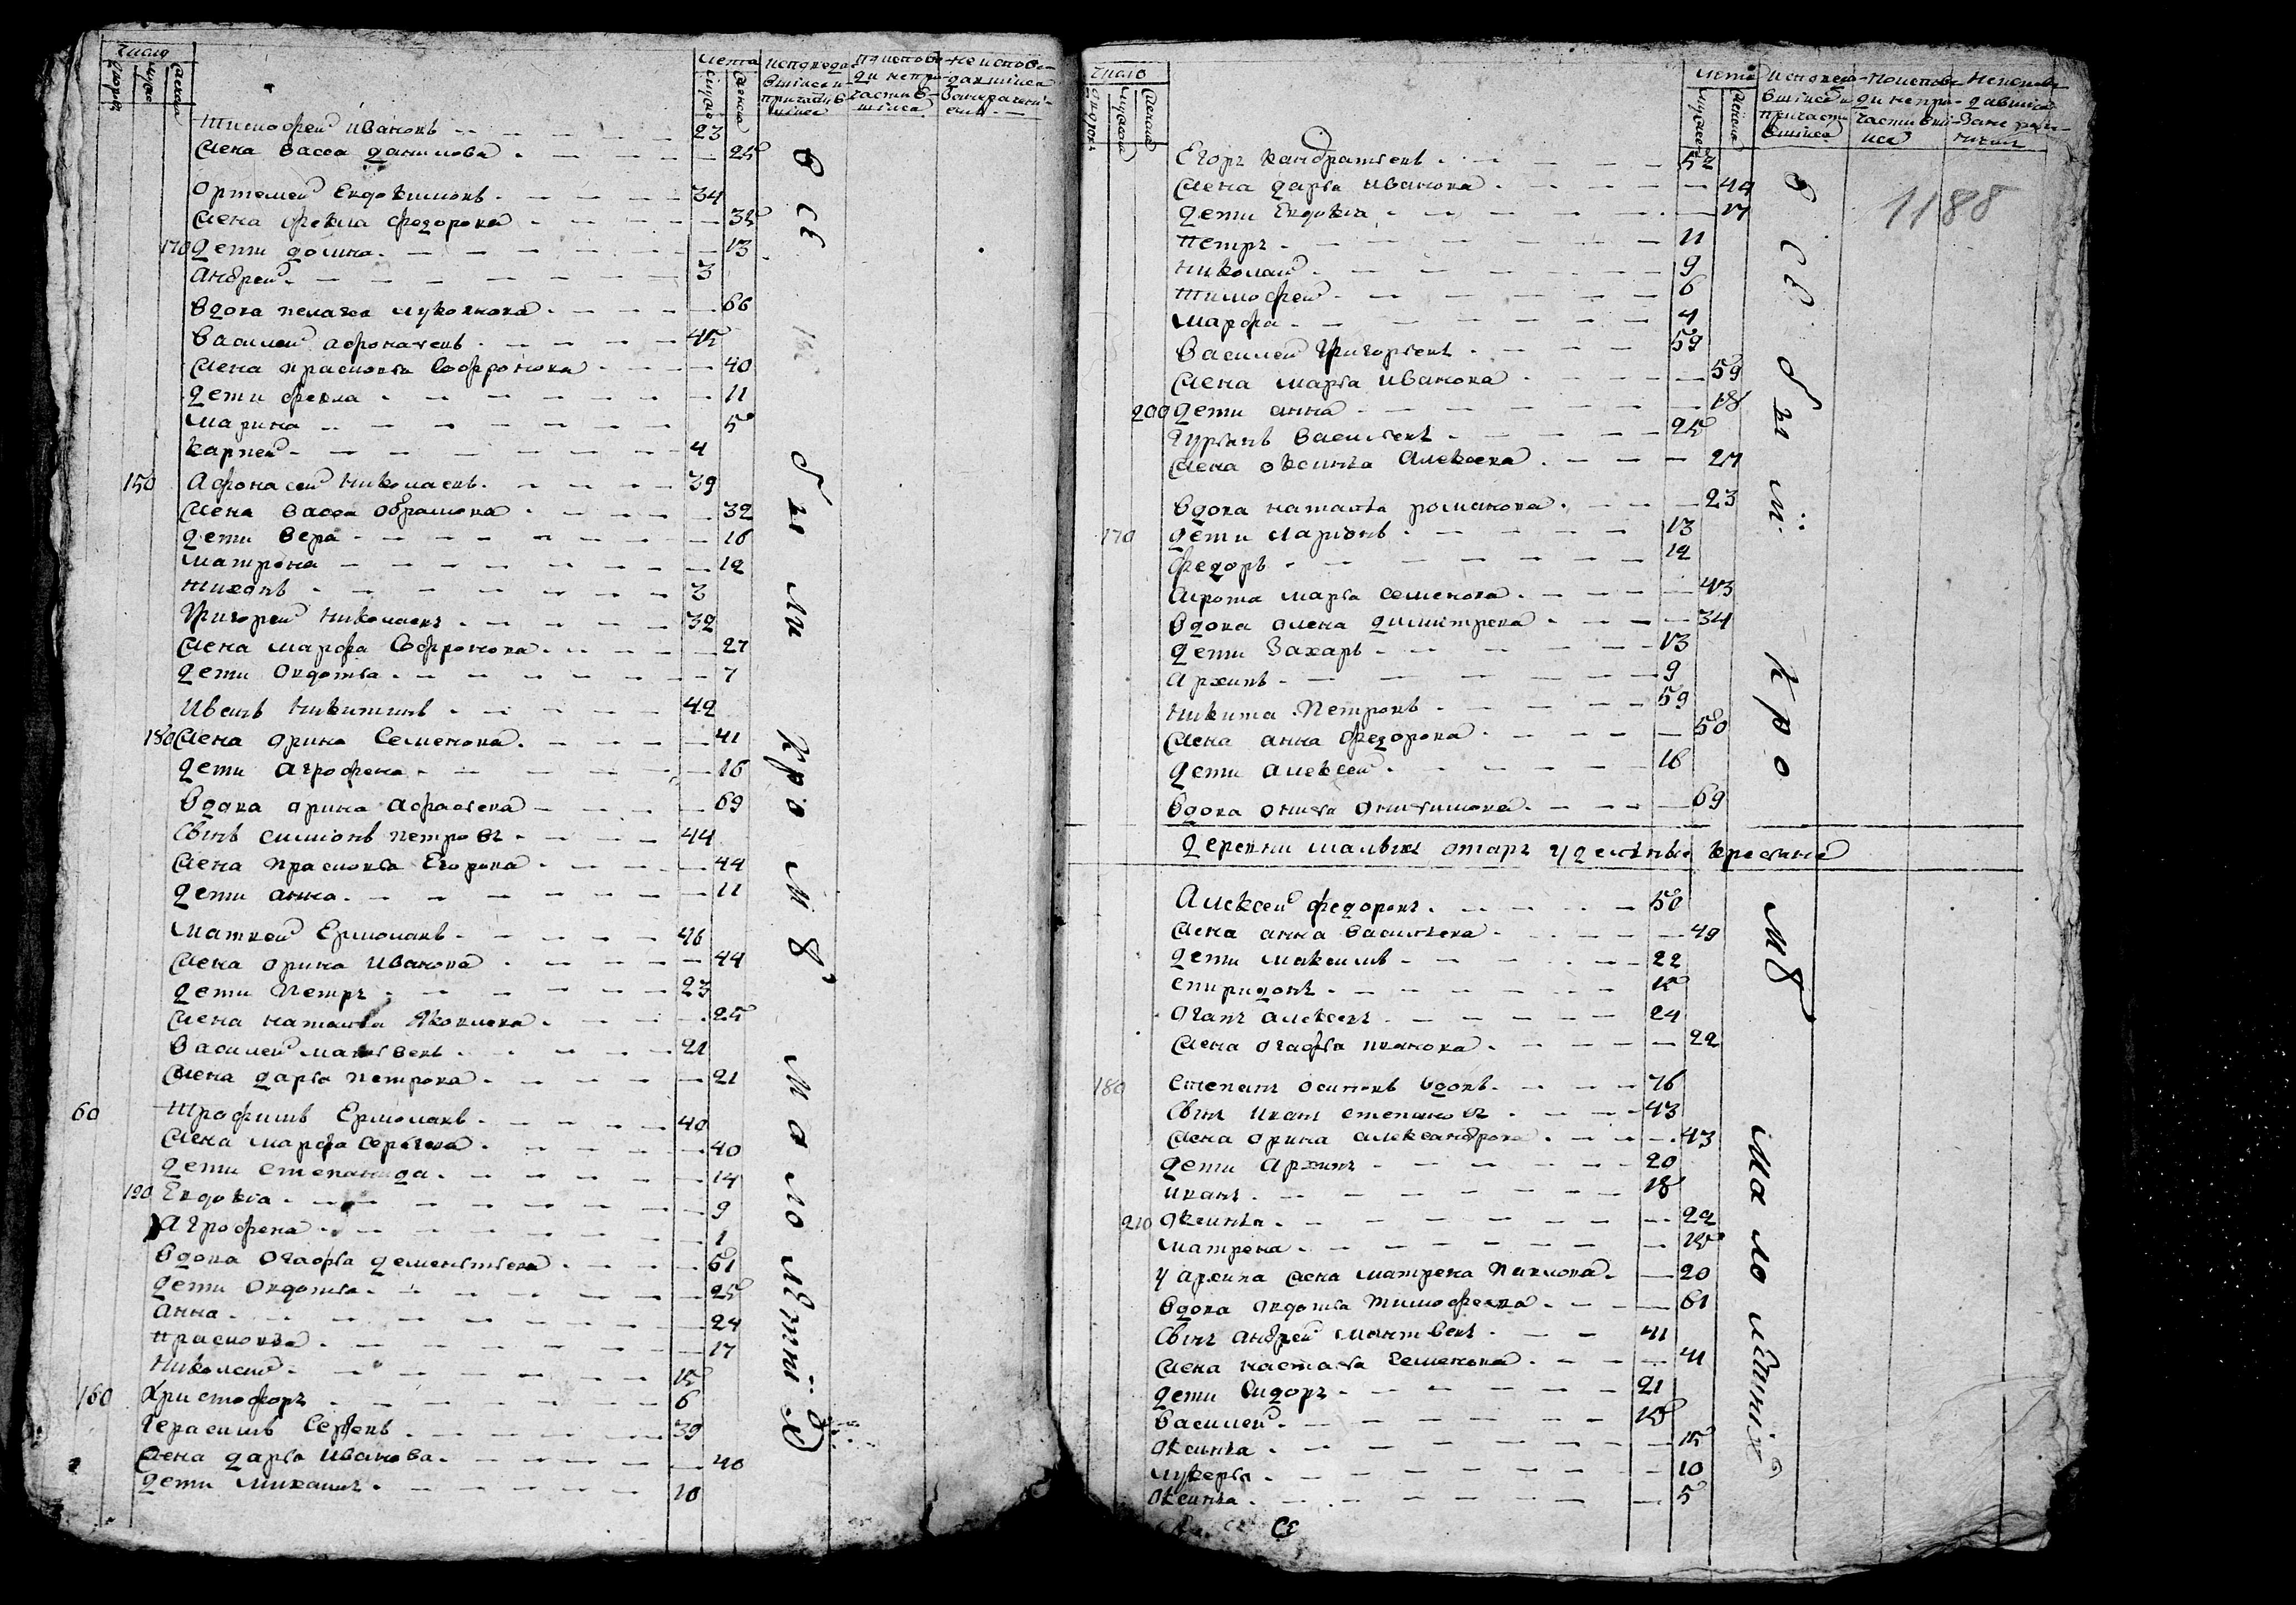 Число
Дворов
Мужска
Женска
Лета
Мужско
Женска
исповедавшіися и причастившіися
исповеди непричастившіися
неисповедавшіися
Тимофеи Ивановъ 23
Жена Васса Данилова 25
Ортемеи Евдокимовъ 34
Жена Фекла Федорова 35
170 дети Домна 13
Андреи 3
Вдова Пелагея Лукоянова 66
Василеи Афонасевъ 45
Жена Прасковья Софронова 40
дети Фекла 11
Марина 5
Карпеи 4
150 Афонасеи Николаевъ 39
Жена Васса Обрамова 32
дети Вера 16
Матрона 12
Тихонъ 3
Григореи Николаевъ 32
Жена Марфа Софронова 27
дети Овдотья 7
Иванъ Никитинъ 42
180 Жена Орина Семенова 41
дети Аграфена 16
Вдова Орина 69
Сынъ Симионъ Петровъ 44
Жена Прасковья Егорова 44
дети Анна 11
Матвеи Ермолаевъ 46
Жена Орина Иванова 44
дети Петръ 23
Жена Наталья Яковлева 25
Василеи Матвеевъ 21
Жена Дарья Петрова 21
60 Трофимъ Ермолаевъ 40
Жена Марфа Сергеева 40
дети Степанида 14
190 Евдокия 9
Агрофена 1
Вдова Огафья Дементьева 61
дети Овдотья 25
Анна 24
Прасковья 17
Николаи 15
160 Христофоръ 6
Герасимъ Сергеевъ 39
Жена Дарья Иванова 40
дети Михаилъ 10
все были кромѣ малолетних
Число
Дворовъ
Мужска
Женска
Лета
Мужска
Женска
Исповедавшіися и причаствшіися
Поисповеди непричастившіися
Неисповедавшіися
1188
Егоръ Кандратьевъ 52
Жена Дарья Иванова 49
дети Евдокия 17
Петръ 11
Николаи 9
Тимофеи 6
Марфа 4
Василеи Григорьевъ 59
Жена Марья Иванова 59
200 дети Анна 18
Гурьянъ Васильевъ 25
Жена Оксинья Алексеева 27
Вдова Наталья Романова 23
170 дети Ларионъ 13
Федоръ 12
Сирота Марья Семенова 43
Вдова Олена Димитрева 34
дети Захаръ 13
Архипъ 9
Никита Петровъ 59
Жена Анна Федорова 50
дети Алексеи 16
Вдова Онисья Онисимова 69
Деревни Малыхъ Отаръ Удельные крестьяне
Алексеи Федоровъ 50
Жена Анна Васильева 49
дети Максимъ 22
Спиридонъ 15
Огапъ Алексеевъ 24
Жена Огафья Иванова 22
180 Степанъ Осиповъ вдовъ 76
Сынъ Иванъ Степановъ 43
Жена Орина Александрова 43
дети Архипъ 20
Иванъ 18
210 Оксинья 22
Матрена 15
у Архипа Жена Матрена Павлова 20
Вдова Овдотья Тимофеева 61
Сынъ Андреи Матвеевъ 41
Жена Настасья Семенова 41
дети Сидоръ 21
Василеи 18
Оксинья 15
Лукерья 10
Оксинья 5
все были кромѣ малолетних